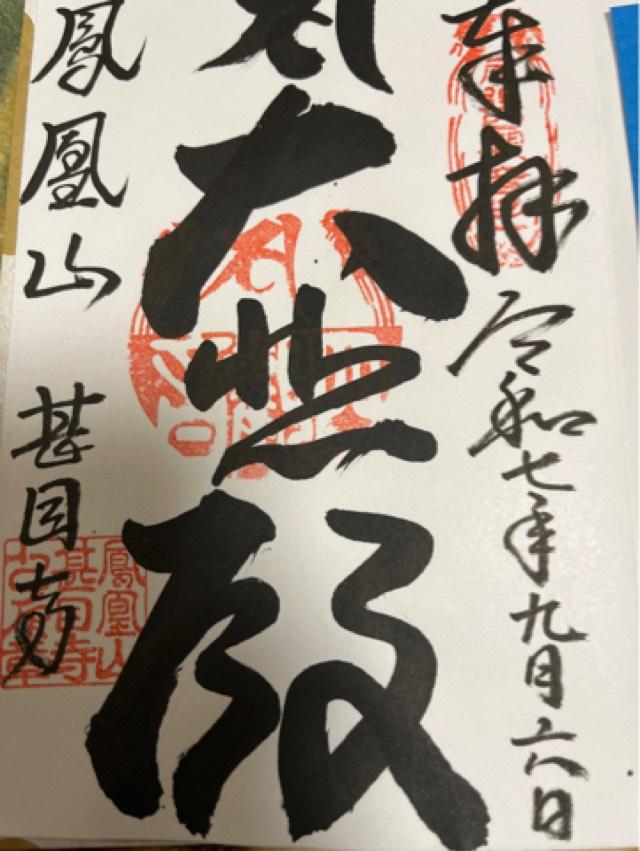 奉拝 令和七年九月六日
大悲殿
鳳凰山 甚目寺
鳳凰山
甚目寺